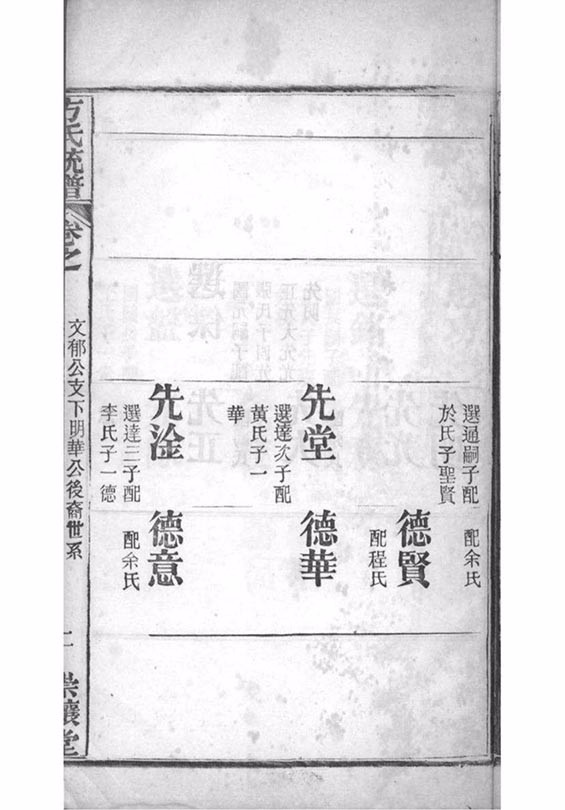 選通嗣子配
於氏子聖賢
配余氏
德賢
配程氏
先堂
選達次子配
黃氏子一
華
德華
先淦
選達三子配
李氏子一德
德意
配余氏
方氏統譜
卷之
文郁公支下明華公後裔世系